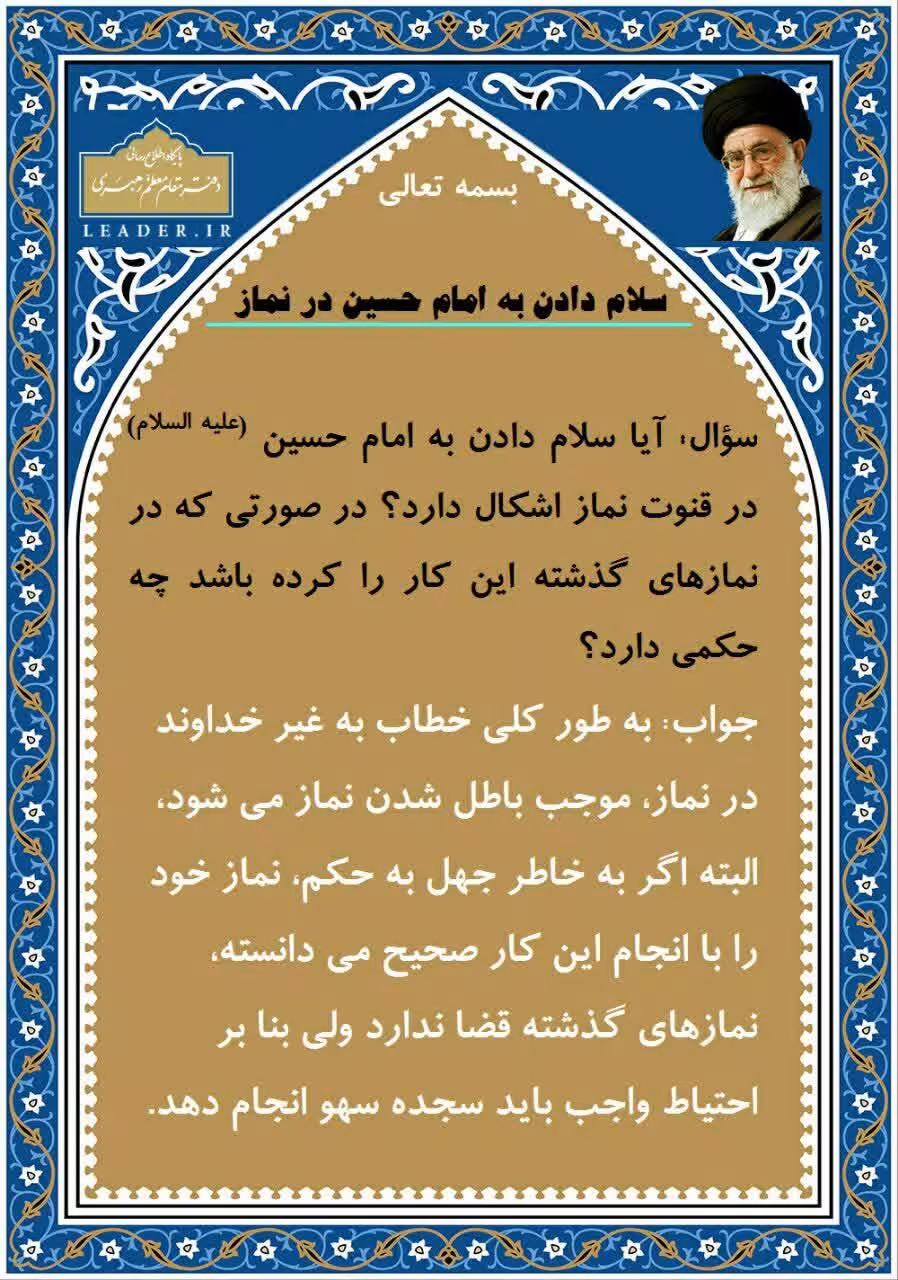 پایگاه اطلاع رسانی
دفتر مقام معظم رهبری
LEADER.IR
بسمه تعالی
سلام دادن به امام حسین در نماز
سؤال: آیا سلام دادن به امام حسین (علیه السلام)
در قنوت نماز اشکال دارد؟ در صورتی که در
نمازهای گذشته این کار را کرده باشد چه
حکمی دارد؟
جواب: به طور کلی خطاب به غیر خداوند
در نماز، موجب باطل شدن نماز می شود،
البته اگر به خاطر جهل به حکم، نماز خود
را با انجام این کار صحیح می دانسته،
نمازهای گذشته قضا ندارد ولی بنا بر
احتیاط واجب باید سجده سهو انجام دهد.